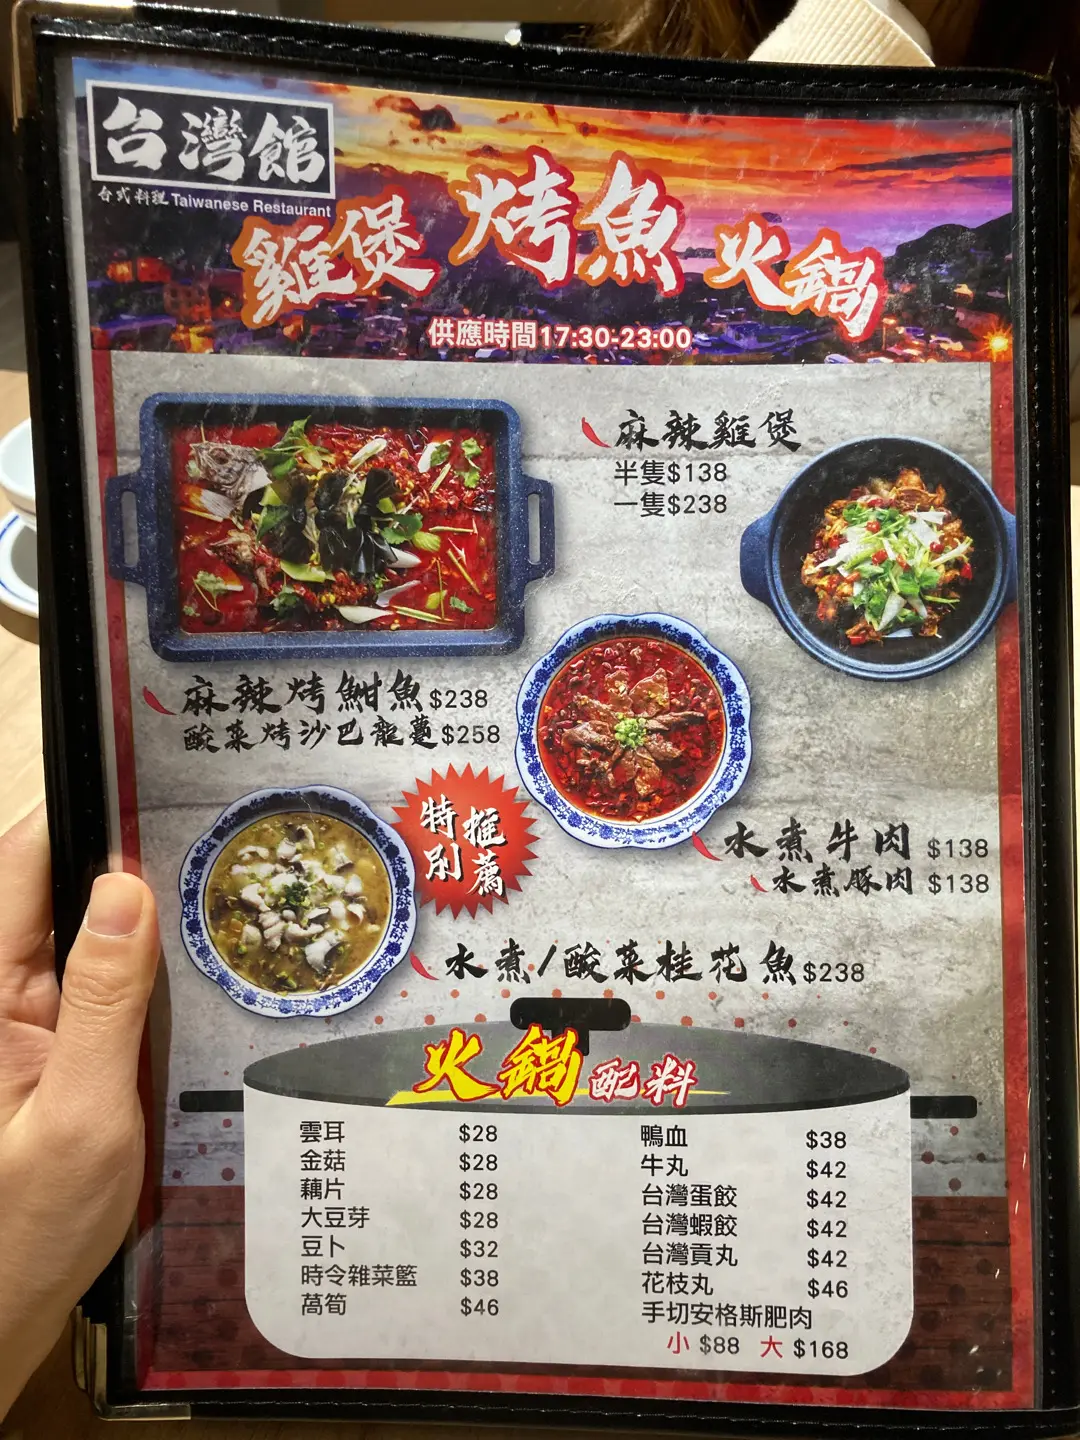 台灣館
台式料理 Taiwanese Restaurant
雞煲 烤魚 火鍋
供應時間17:30-23:00
麻辣雞煲
半隻$138
一隻$238
麻辣烤魽魚$238
酸菜烤沙巴龍躉$258
特別推薦
水煮牛肉 $138
水煮豚肉 $138
水煮/酸菜桂花魚$238
火鍋配料
雲耳 $28
金菇 $28
藕片 $28
大豆芽 $28
豆卜 $32
時令雜菜籃 $38
萵筍 $46
鴨血 $38
牛丸 $42
台灣蛋餃 $42
台灣蝦餃 $42
台灣貢丸 $42
花枝丸 $46
手切安格斯肥肉
小 $88 大 $168